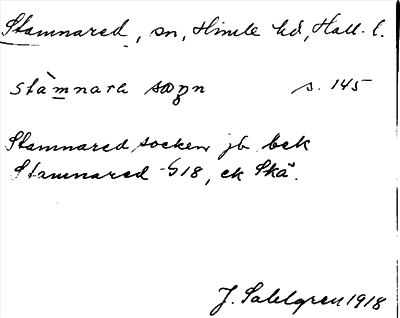 Stamnared, sn, Himle hd, Hall. l.
stàmnara sogn s. 145
Stamnared socken jb bek
Stamnared 1/2 18, ek Skä.
J. Sahlgren 1918